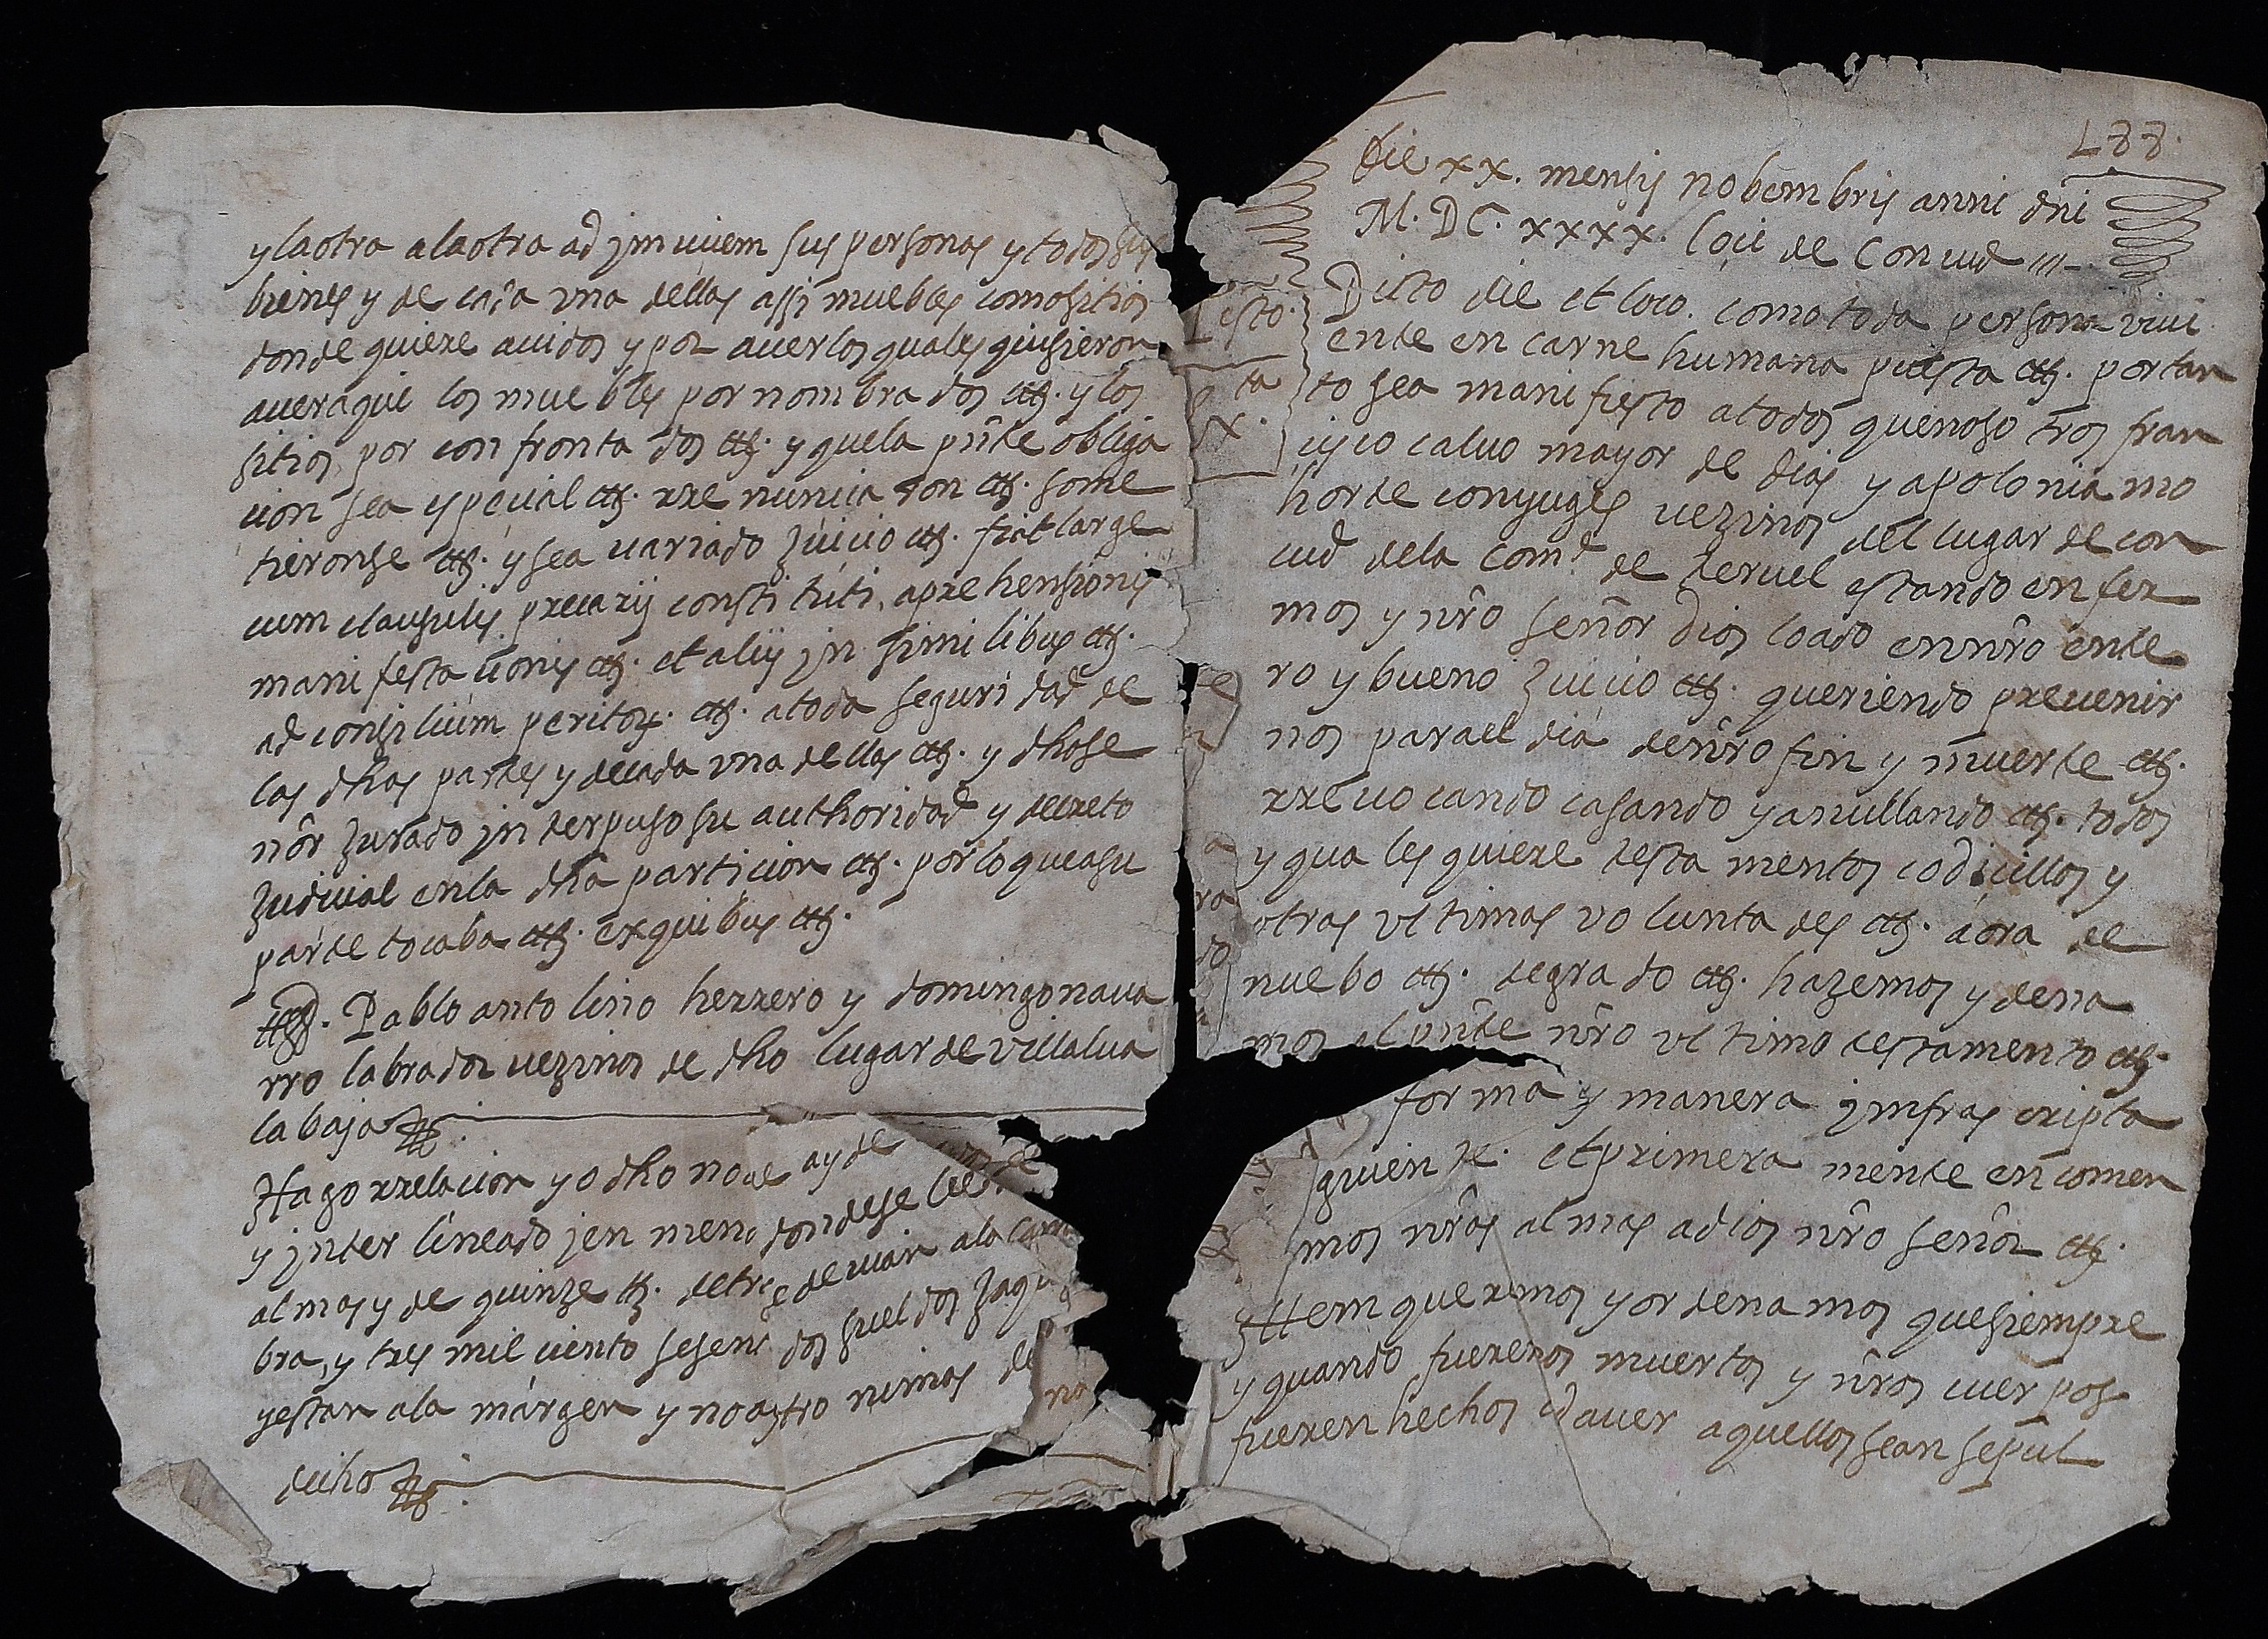 y la otra a la otra ad jnvicem sus personas y todos sus
bienes y de cada vna dellas assi muebles como sitios
donde quiere auidos y por auer los quales quisieron
auer aqui los muebles por nombrados etc. y los
sitios por confrontados etc. y que la pnte obliga
cion sea especial etc. rrenunciaron etc. some
tieronse etc. y sea variado Juicio etc. fiat large
cum clausulis precarij constituti, aprehensionis
manifestationis etc. et alijs jn similibus etc.
ad consilium peritor. etc. a toda seguridad de
las dhas partes y de cada vna dellas etc. y dho se
ñor Jurado jnterpuso su authoridad y decreto
Judicial en la dha particion etc. por lo que a su
parte tocaba etc. ex quibus etc.
Pablo antolino herrero y domingo naua
rro labrador vezinos de dho lugar de villalua
la baja
Hago rrelacion yo dho no de ay de
y jnterlineado donde se lee
almas y de quinze etc. de tre deuan a la cam
bra, y tres mil ciento sesent dos sueldos Jaq
yestan a la márgen y no astro nimas de no
dicho
L88.
Die xx. mensis nobembris anni dñi
M. DC. xxxx. loci de Concud
testo.
Dicto die et loco. como toda persona viui
ente en carne humana puesta etc. portan
to sea manifiesto a todos que nosotros fran
ta
x.
cisco caluo mayor de dias y apolonia mo
horte conyuges vezinos del lugar de con
cud de la comd. de teruel estando enfer
mos y nro señor Dios loado en nro ente
ro y bueno Juicio etc. queriendo preuenir
nos para el dia de nro fin y muerte etc.
rreuocando casando y anullando etc. todos
y quales quiere testamentos codicillos y
otras vltimas voluntades etc. aora de
nuebo etc. de grado etc. hazemos y dena
mos el pnte nro vltimo testamento etc.
forma y manera jnfrascripta
guiente. et primeramente encomen
mos nras almas a dios nro señor etc.
yttem queremos y ordenamos que siempre
y quando fueremos muertos y nros cuerpos
fueren hechos cdauer aquellos sean sepul